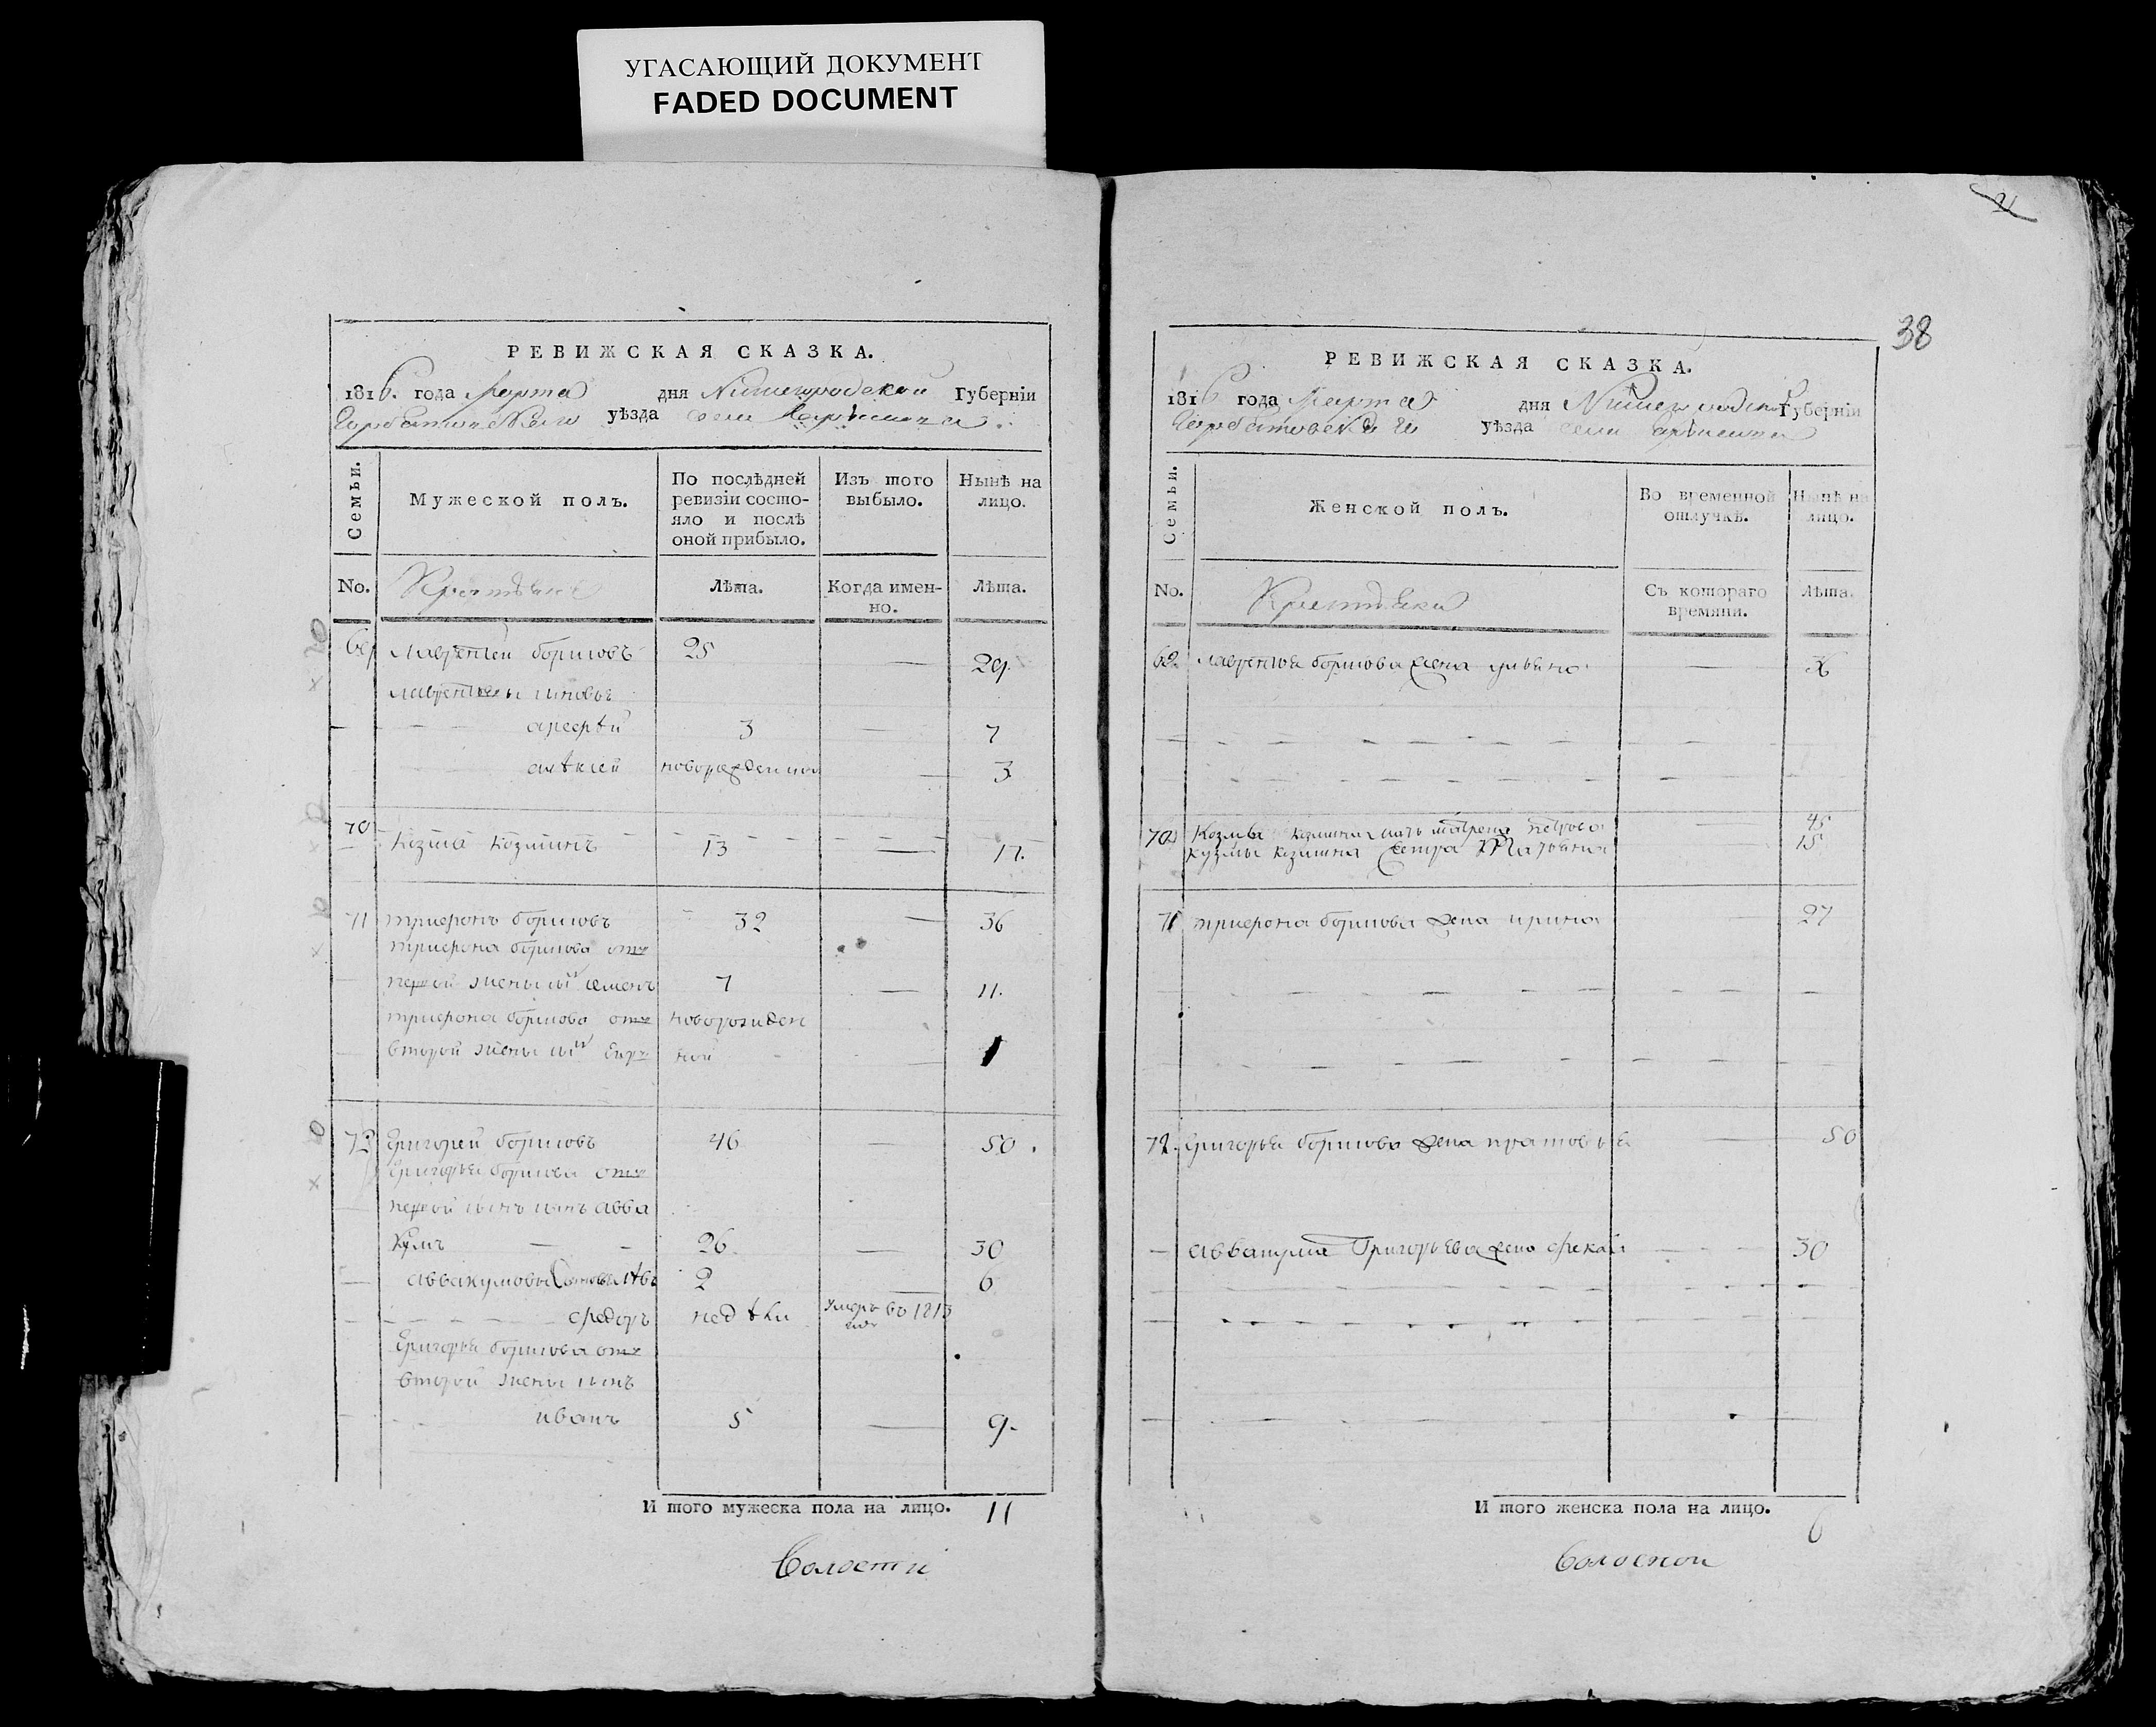 УГАСАЮЩИЙ ДОКУМЕНТ
FADED DOCUMENT
РЕВИЖСКАЯ СКАЗКА.
1816. года Марта дня Нижегородской Губернїи
Горбатовскаго уѣзда села
Семьи.
Мужеской полъ.
По послѣдней ревизїи состо-
яло и послѣ
оной прибыло.
Изъ того
выбыло.
Нынѣ на
лицо.
No.
Крестьяне
Лѣта.
Когда имен-
но.
Лѣта.
69 Лаврентей борисовъ 25 — 29.
лаврентьевы сыновья
арсерѣй 3 — 7
алѣксей новорожденной — 3
70 Козма Козминъ 13 — 17.
71 трифонъ борисовъ 32 — 36
трифона борисова отъ
первой жены сынъ семенъ 7 — 11.
трифона борисова отъ новорожден
второй жены сынъ ной — 1
72 Григорей борисовъ 46 — 50.
Григорья борисова отъ
первой сынъ авва
кумъ — 26. — 30
аввакумовы 2 — 6
федоръ недѣли умеръ въ 1813
годѣ
Григорья борисова отъ
второй жены сынъ
иванъ 5 — 9.
И того мужеска пола на лицо. 11
Волости
38
РЕВИЖСКАЯ СКАЗКА.
1816 года Марта дня Нижегородской Губернїи
Горбатовскаго уѣзда села
Семьи.
Женской полъ.
Во временной
отлучкѣ.
Нынѣ на
лицо.
No.
Крестьянки
Съ котораго
времяни.
Лѣта.
69. Лаврентья борисова жена ульяна — 36
70 Козмы Козмина мать матрена петрова — 45
кузмы козмина сестра Марьяна — 15
71 трифона борисова жена ирина — 27
72. Григорья борисова жена — 50
— аввакума Григорьева жена — 30
И того женска пола на лицо. 6